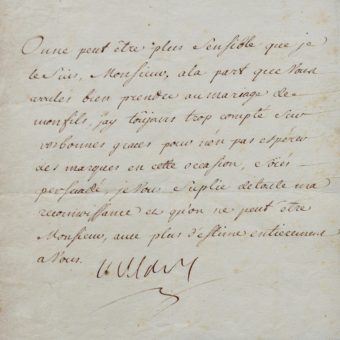 On ne peut être plus sensible que je
le suis, Monsieur, a la part que Vous
voulés bien prendre au mariage de
mon fils, jay toujours trop compté sur
vos bonnes graces pour n'en pas espérer
des marques en cette occasion, soiés
persuadé, je Vous suplie de toute ma
reconnoissance et qu'on ne peut être
Monsieur, avec plus d'estime entierement
a Vous.